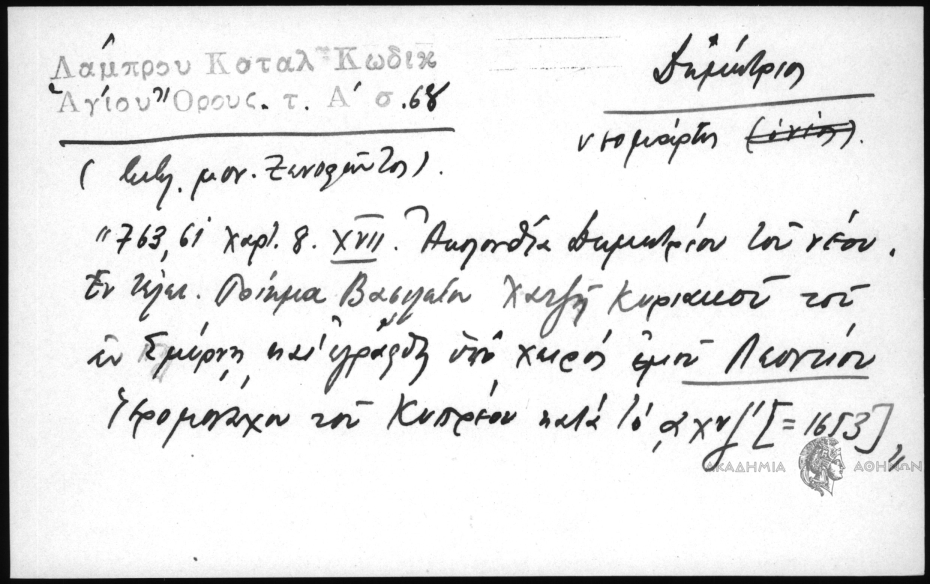 Λάμπρου Καταλ Κωδικ
Ἁγίου Ὄρους. τ. Α´ σ. 68
Δημήτριος
νεομάρτης (ὁ νέος).
(Βιβλ. μον. Ξενοφῶντος).
"763, 61 χαρτ. 8. XVII. Ἀκολουθία Δημητρίου τοῦ νέου.
Ἐν τέλει. Ποίημα Βασιλείου Χατζῆ Κυριακοῦ τοῦ
ἐν Σμύρνῃ καὶ ἐγράφη ὑπὸ χειρός ἐμοῦ Λεοντίου
Ἱερομονάχου τοῦ Κυπρίου κατά τό [=1653]"
ΑΚΑΔΗΜΙΑ ΑΘΗΝΩΝ